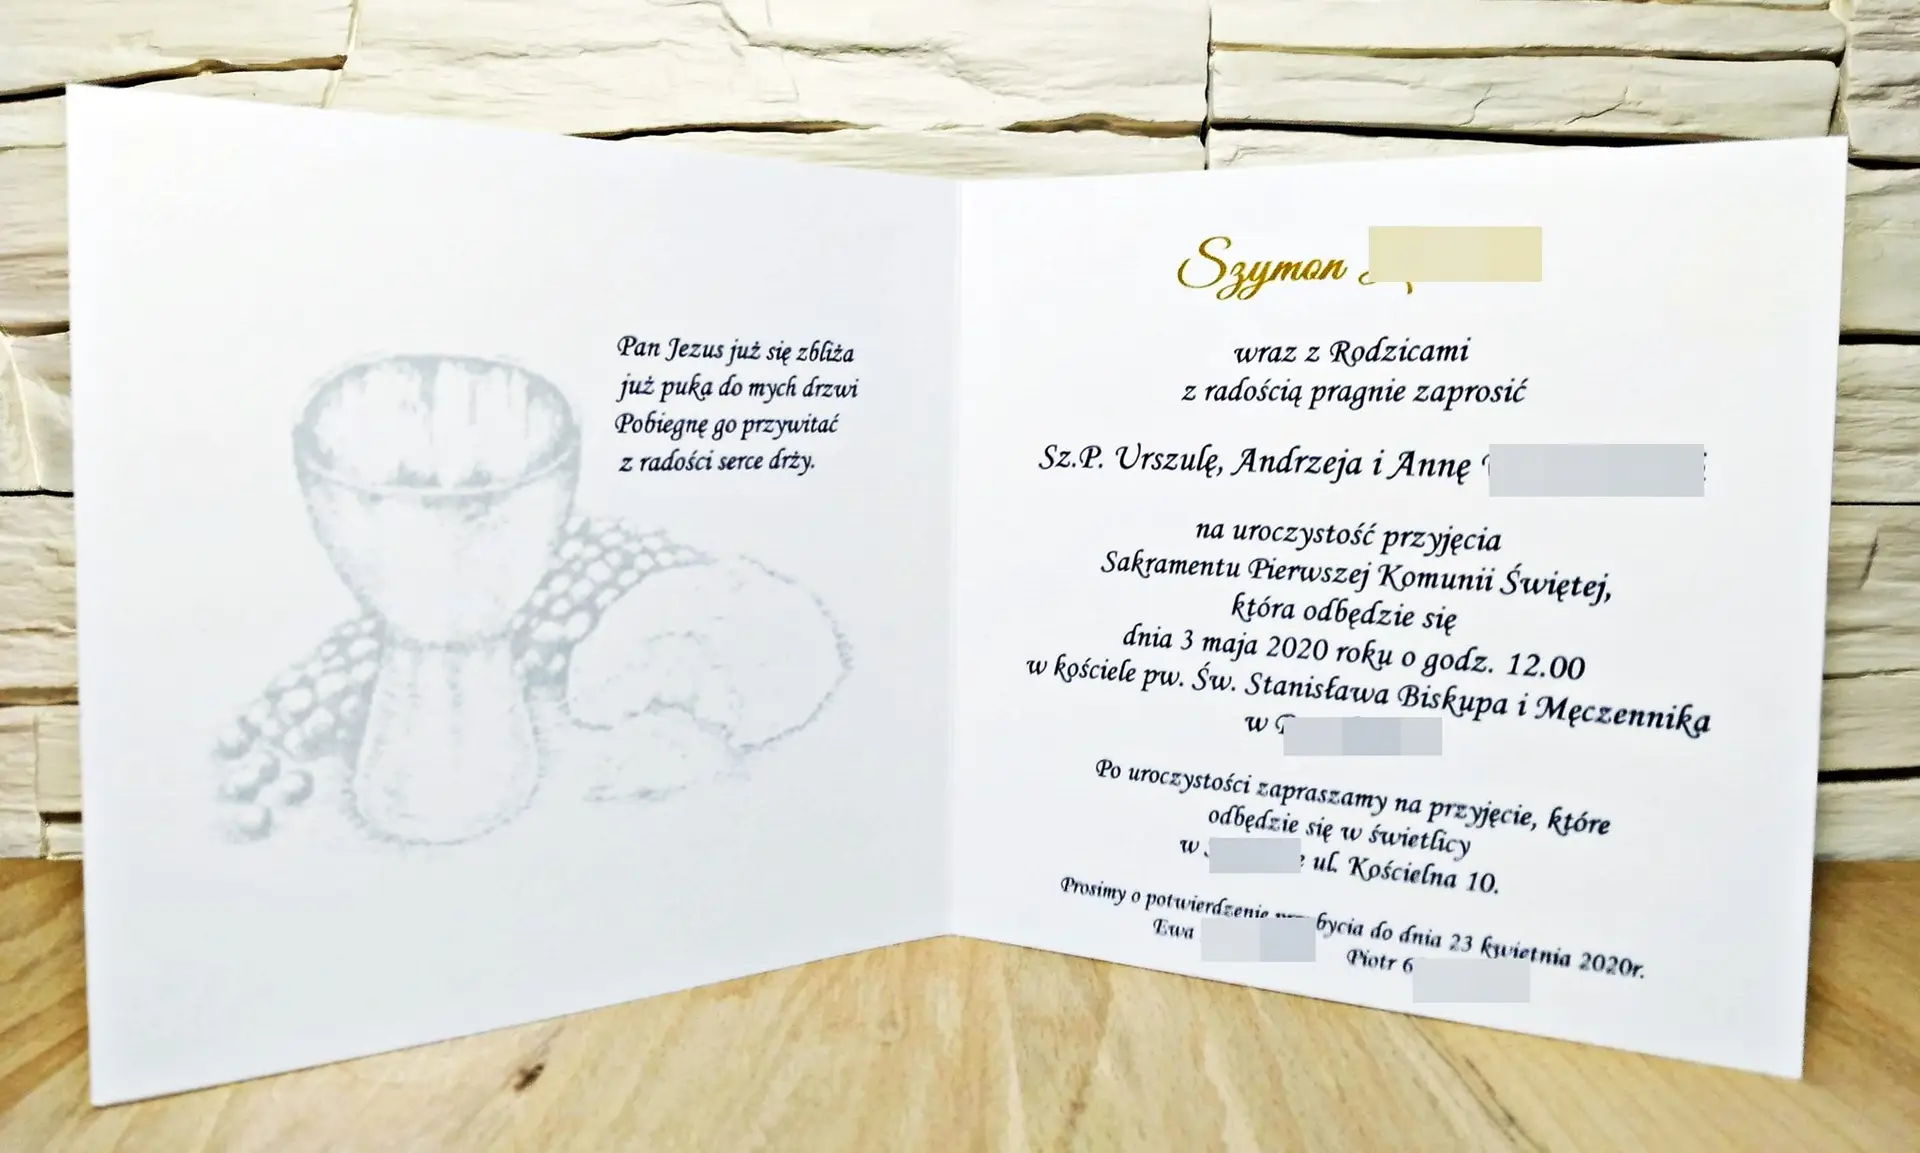 Pan Jezus już się zbliża
już puka do mych drzwi
Pobiegnę go przywitać
z radości serce drży.
Szymon
wraz z Rodzicami
z radością pragnie zaprosić
Sz.P. Urszulę, Andrzeja i Annę
na uroczystość przyjęcia
Sakramentu Pierwszej Komunii Świętej,
która odbędzie się
dnia 3 maja 2020 roku o godz. 12.00
w kościele pw. Św. Stanisława Biskupa i Męczennika
w
Po uroczystości zapraszamy na przyjęcie, które
odbędzie się w świetlicy
w ul. Kościelna 10.
Prosimy o potwierdzenie do dnia 23 kwietnia 2020r.
Ewa
Piotr 6